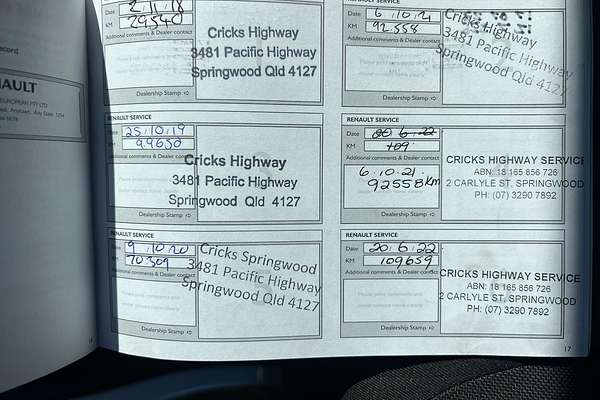 ecord
AULT
EUROPEAN PTY LTD
Date 2.11.18
KM 29540
Additional comments & Dealer contact
Dealership Stamp
Cricks Highway
3481 Pacific Highway
Springwood Qld 4127
RENAULT SERVICE
Date 25.10.19
KM
Additional comments & Dealer contact
Dealership Stamp
Cricks Highway
3481 Pacific Highway
Springwood Qld 4127
RENAULT SERVICE
Date 9.10.20
KM 70309
Additional comments & Dealer contact
Dealership Stamp
Cricks Springwood
3481 Pacific Highway
Springwood Qld 4127
Date 6.10.21
KM 92558
Additional comments & Dealer contact
Dealership Stamp
Cricks Highway
3481 Pacific Highway
Springwood Qld 4127
RENAULT SERVICE
Date 20.6.22
KM 109
Additional comments & Dealer contact
6.10.21.
92558km
Dealership Stamp
CRICKS HIGHWAY SERVICE
ABN: 18 165 856 726
2 CARLYLE ST, SPRINGWOOD
PH: (07) 3290 7892
RENAULT SERVICE
Date 20.6.22
KM 109659
Additional comments & Dealer contact
Dealership Stamp
CRICKS HIGHWAY SERVICE
ABN: 18 165 856 726
2 CARLYLE ST, SPRINGWOOD
PH: (07) 3290 7892
17